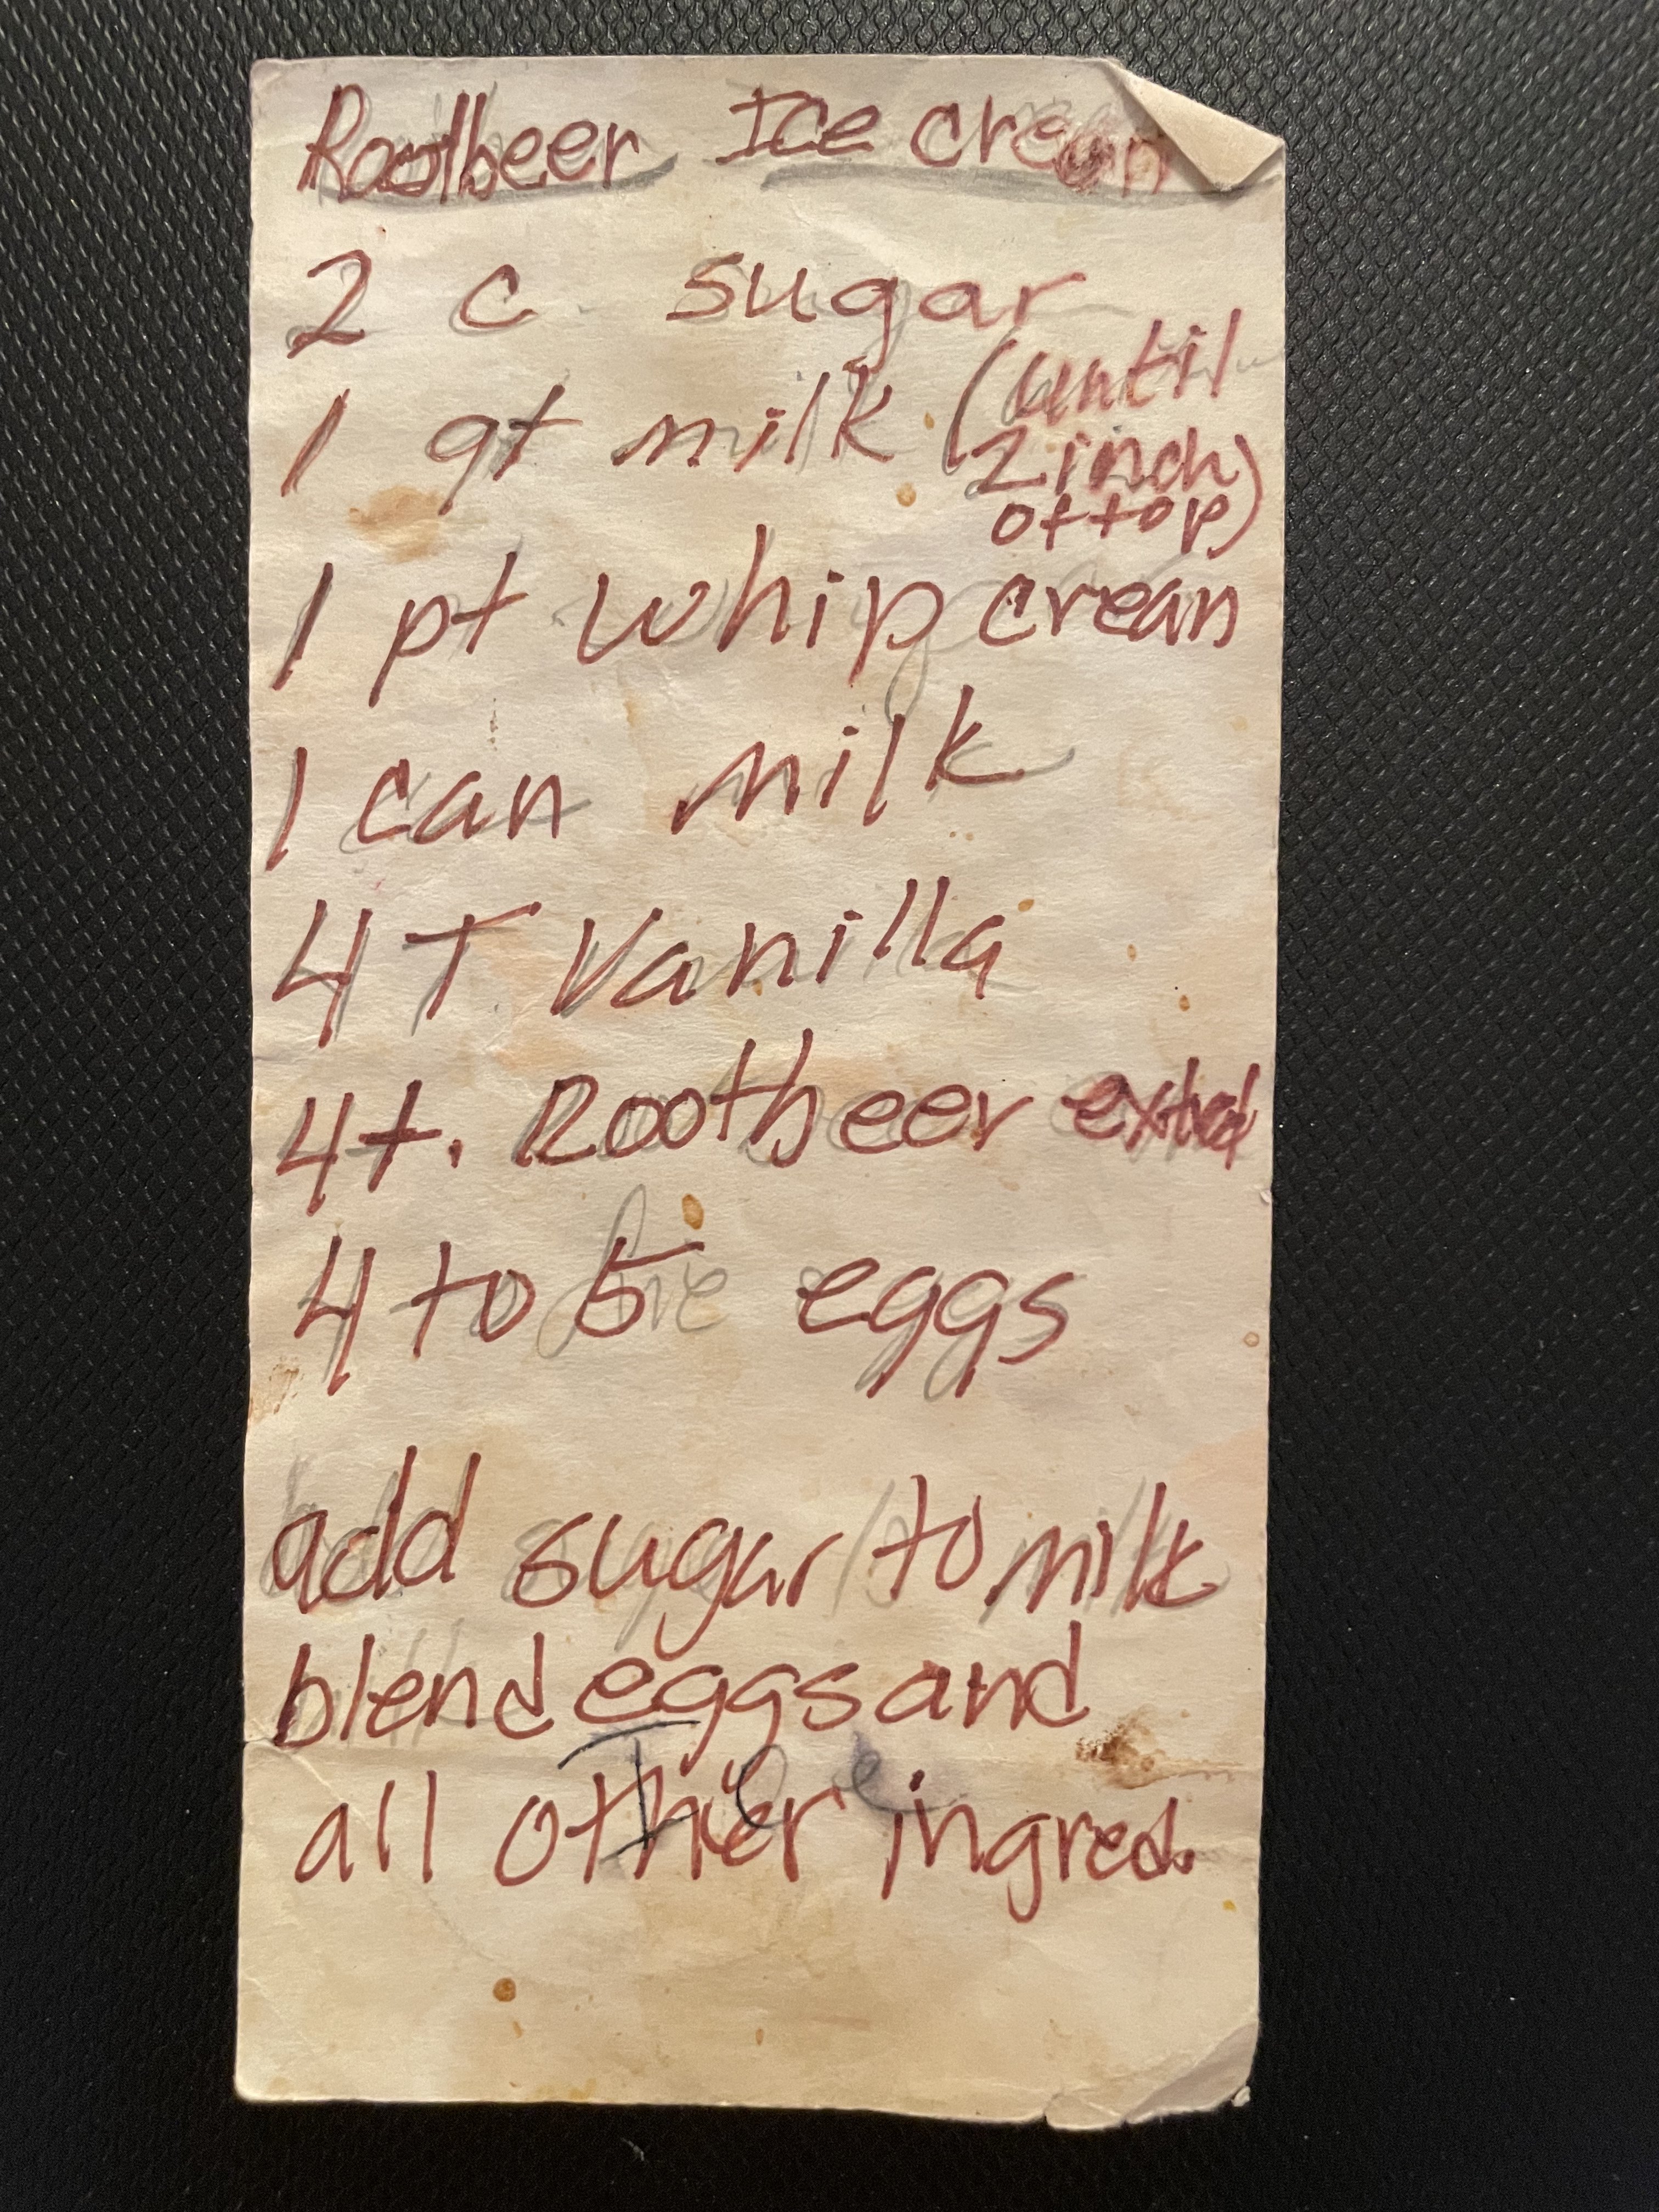 Rootbeer Ice cream
2 c sugar
1 qt milk (until
2 inch
of top)
1 pt whip cream
1 can milk
4 T Vanilla
4 t. Rootbeer extract
4 to 5 eggs
add sugar to milk
blend eggs and
all other ingred.